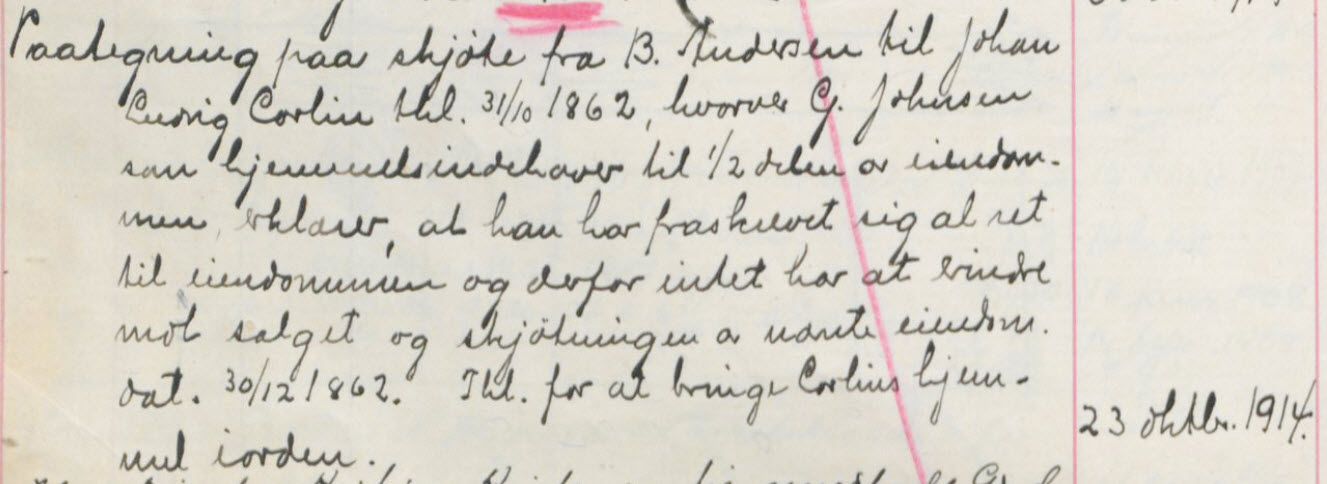 Paategning paa skjøte fra B. Andersen til Johan
Ludvig Corlin thl. 31/10 1862, hvorver G. Johnsen
som hjemmelsindehaver til 1/2 delen av eiendom-
men, erklærer, at han har fraskrevet sig al ret
til eiendommen og derfor intet har at erindre
mot salget og skjøtningen av nævnte eiendom.
dat. 30/12 1862. Thl. for at bringe Corlins hjem-
mel iorden.
23 oktbr. 1914.